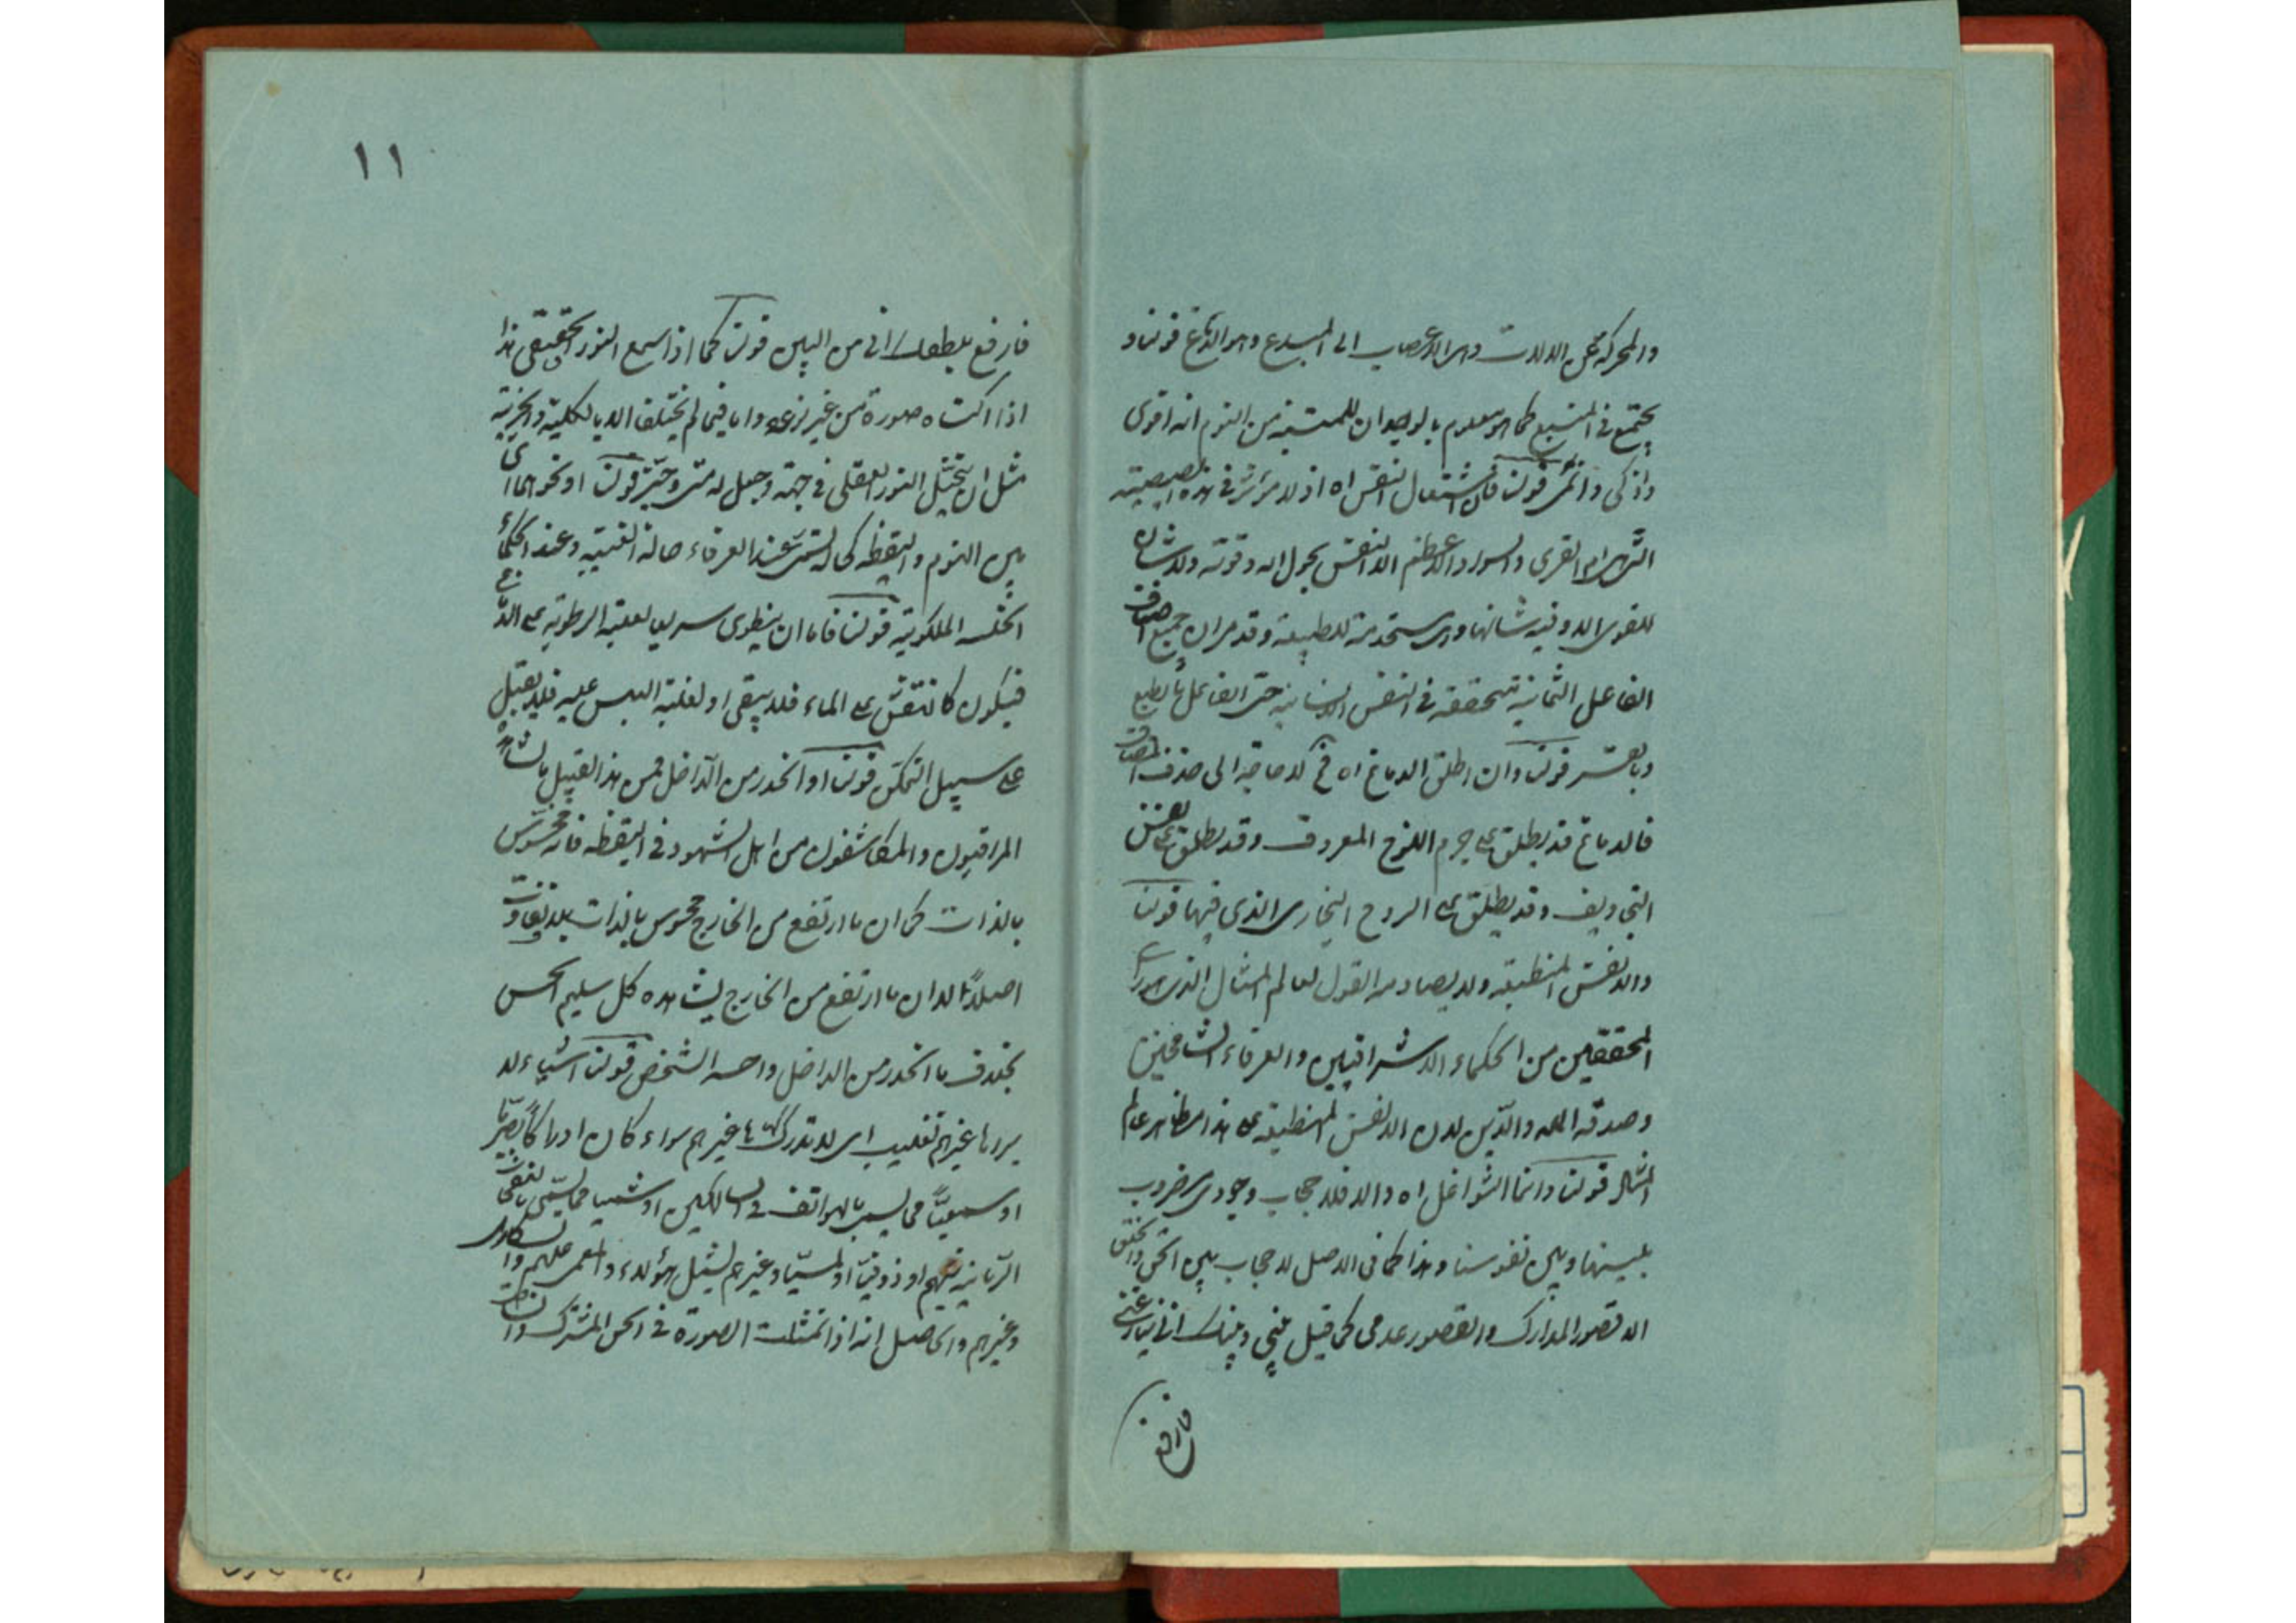 والمحركة محل الالات وهى الاعصاب الى المبدء وهو الدماغ قولنا و
يجتمع فى المنبع كما هو معلوم بالوجدان للمتنبه من النوم انه اقوى
واذكى واتم قولنا فان اشتعال النفس اه اذ لا مؤثر فى هذه الصيصية
التى هى ام القرى والسواد الاعظم الا النفس بحول الله وقوته ولا شان
للقوى الا وفيه شانها وهى مستخدمة للطبيعة وقد مر ان جميع اصناف
الفاعل الثمانية متحققة فى النفس الانسانية حتى الفاعل بالطبع
وبالقسر قولنا وان اطلق الدماغ اه فح لا حاجة الى حذف المضاف
فالدماغ قد يطلق على جرم اللزج المعروف وقد يطلق على نفس
التجاويف وقد يطلق على الروح البخارى الذى فيها قولنا
والانفس المنطبعة ولا يصادمه القول بعالم المثال الذى هو راى
المحققين من الحكماء الاشراقيين والعرفاء الشامخين
وصدقه الملة والدين لان الانفس المنطبعة على هذا مظاهر عالم
المثال قولنا وانما الشواغل اه والا فلا حجاب وجودى مضروب
بينها وبين نفوسنا وهذا كما فى الاصل لا حجاب بين الحق والخلق
الا قصور المدارك والقصور عدمى كما قيل بينى وبينك انى ينازعنى
فارفع
١١
فارفع بلطفك انى من البين قولنا كما اذا سمع النور الحقيقى هذا
اذا اكتساه صورة من غير نوعه واما فيما لم يختلف الا بالكلية والجزئية
مثل ان يتخيل النور العقلى فى جهة وجعل له متى وحيز قولنا او نحوهما اى
بين النوم واليقظة كما لتسمى عند العرفاء حالة الغيبة وعند الحكماء
الخلسة الملكوتية قولنا فاما ان ينطوى سريعا لغلبة الرطوبة على الدماغ
فيكون كالنقش على الماء فلا يبقى او لغلبة اليبس عليه فلا يقبل
على سبيل التمكن قولنا او انحدر من الداخل فمن هذا القبيل ما يشاهده
المراقبون والمكاشفون من اهل الشهود فى اليقظة فانه محسوس
بالذات كما ان ما ارتفع من الخارج محسوس بالذات بلا تفاوت
اصلا الا ان ما ارتفع من الخارج يشاهده كل سليم الحس
بخلاف ما انحدر من الداخل واحسه الشخص قولنا اشياء لا
يراها غيرهم تغليب اى لا تدركها غيرهم سواء كان ادراكا بصريا
او سمعيا مما يسمى بالهواتف فى السالكين او شميا مما يسمى بالنفحات
الربانية فيهم او ذوقيا او لمسيا وغيرهم يشمل هؤلاء والمغمى عليهم والسكارى
وغيرهم والحاصل انه اذا تمثلت الصورة فى الحس المشترك